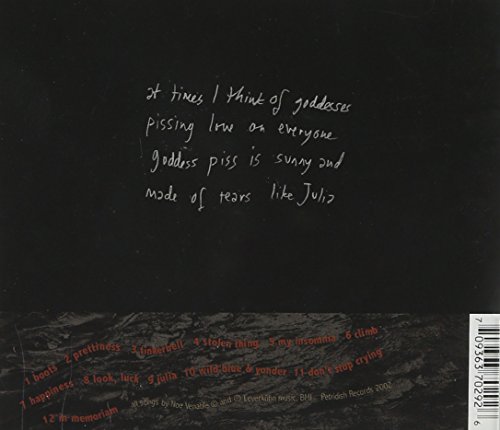 at times I think of goddesses
pissing love on everyone
goddess piss is sunny and
made of tears like Julia
1 boots 2 prettiness 3 tinkerbell 4 stolen thing 5 my insomnia 6 climb
7 happiness 8 look, luck 9 julia 10 wild blue & yonder 11 don't stop crying
12 in memoriam
all songs by Noe Venable © and ℗ Leverkühn music, BMI Petridish Records 2002
7 09363 70292 6